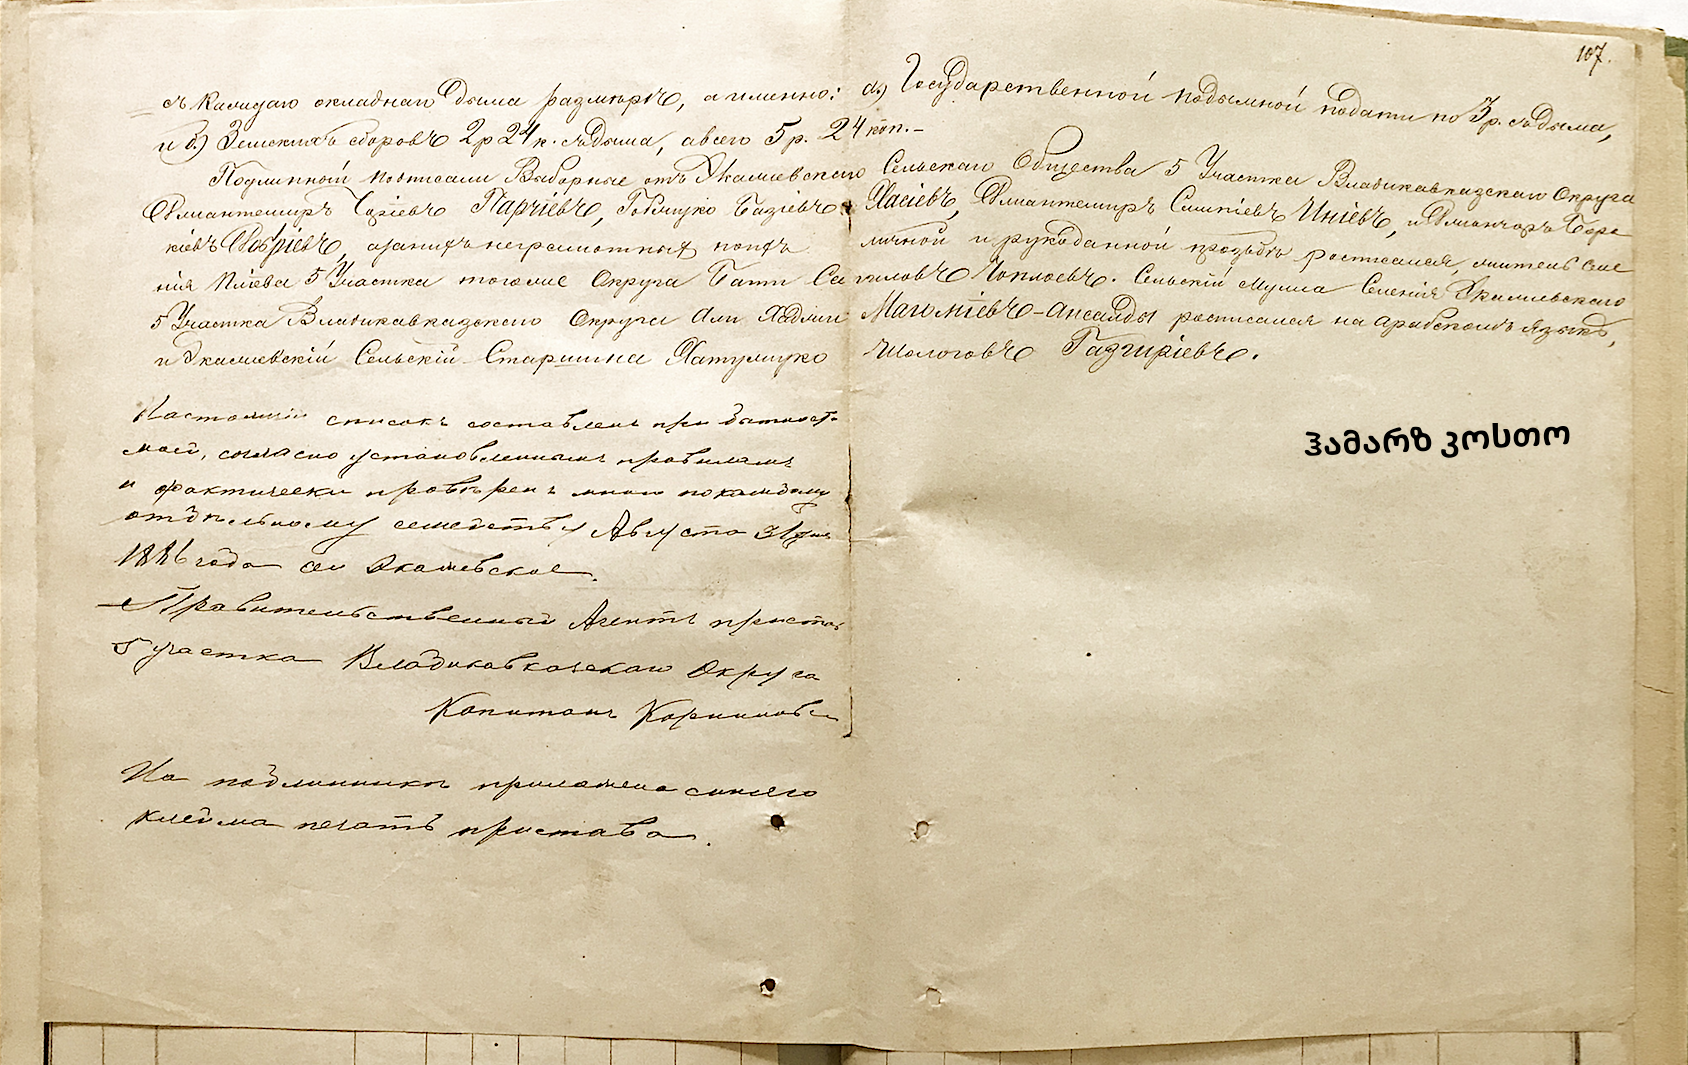 107.
съ каждаго окладнаго дыма размѣрѣ, а именно: а) Государственной подымной подати по 3 р. съ дыма,
и б) Земскихъ сборовъ 2 р 24 к. съ дыма, а всего 5 р. 24 коп.-
Подлинный подписали Выборные отъ Экажевскаго Сельскаго Общества 5 Участка Владикавказскаго Округа
Элмантемиръ Парчіевъ, Хасіевъ, Элмантемиръ Иніевъ, и
а за нихъ неграмотныхъ по ихъ личной и рукоданной просьбѣ росписался, житель Селе
нія Пліева 5 Участка тогоже Округа Бати Чоплоевъ. Сельскій Мулла Селенія Экажевскаго
5 Участка Владикавказскаго Округа Али Хаджи Магоміевъ-Ансалды росписался на Арабскомъ языкѣ,
и Экажевскій Сельскій Старшина Хатумцуко Газгиріевъ.
Настоящій списокъ составленъ при бытности
моей, согласно установленнымъ правиламъ
и фактически провѣренъ мною по каждому
отдѣльному семейству Августа 31 дня
1886 года сел Экажевское.
Правительственный Агентъ приставъ
5 участка Владикавказскаго Округа
Капитанъ
На подлинникѣ приложена синяго
клейма печать пристава.
ჰამარზ კოსთო